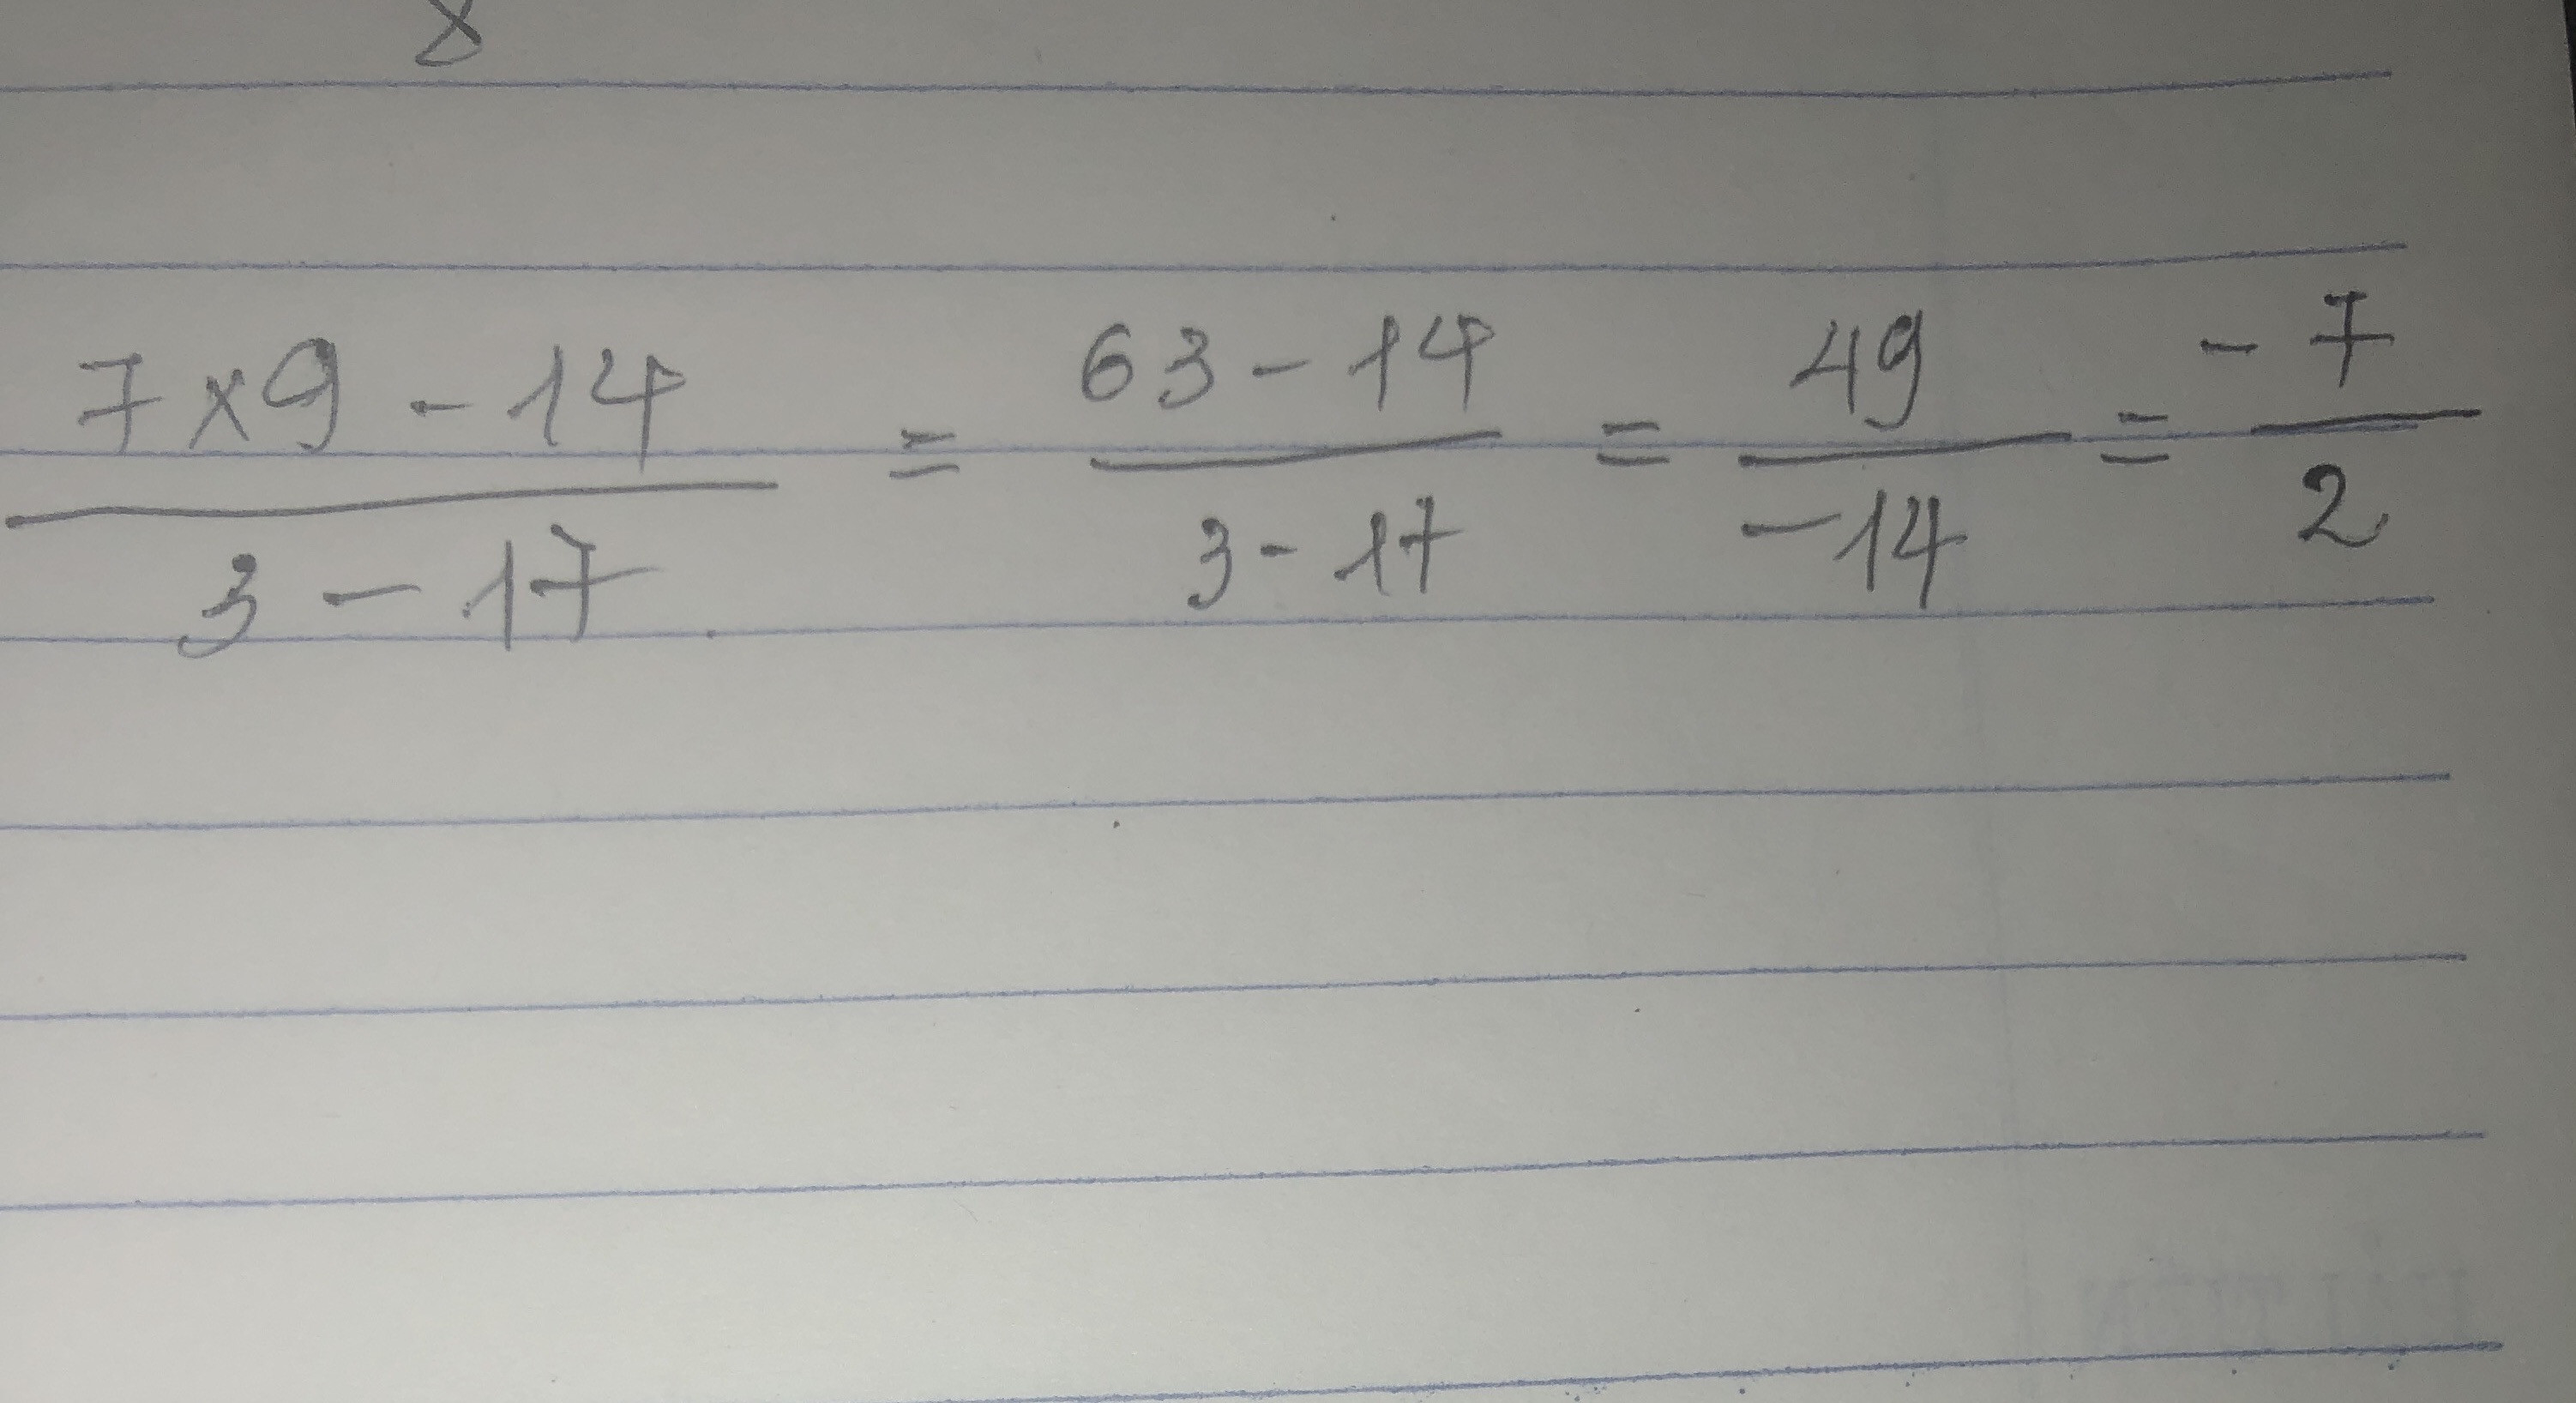 8
7 x 9 - 14 / 3 - 17 = 63 - 14 / 3 - 17 = 49 / -14 = -7 / 2